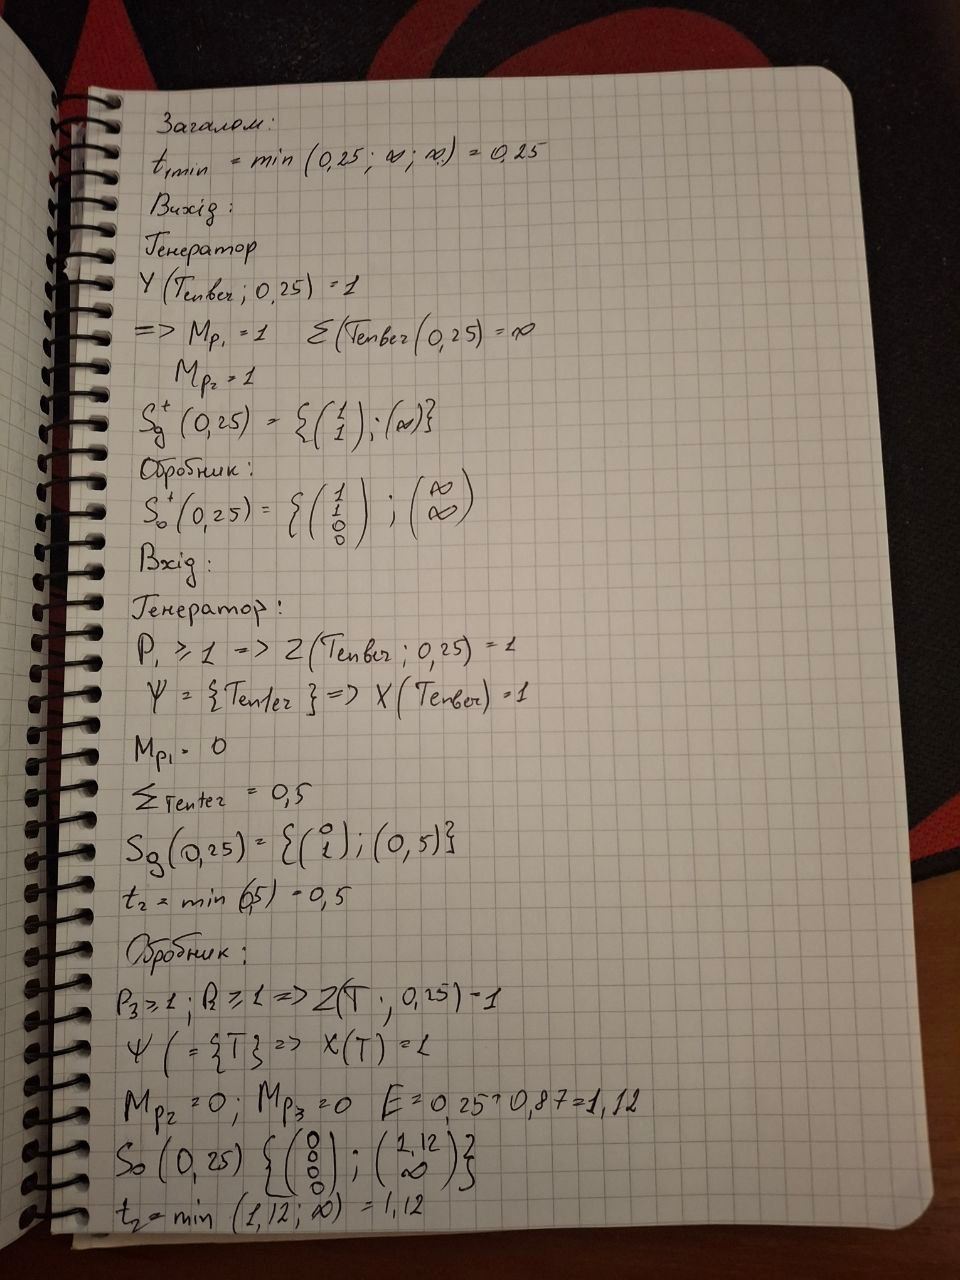 Загалом:
t₁min = min (0,25; ∞; ∞) = 0,25
Вихід:
Генератор
Y (Tenter; 0,25) = 1
=> Mp₁ = 1 Σ(Tenter(0,25) = ∞
Mp₂ = 1
Sg⁺(0,25) = {(1 1); (∞)}
Обробник:
S₀⁺(0,25) = {(1 1 0 0); (∞ ∞)
Вхід:
Генератор:
P₁ ≥ 1 => Z(Tenter; 0,25) = 1
Ψ = {Tenter} => X(Tenter) = 1
Mp₁ = 0
Σ Tenter = 0,5
Sg(0,25) = {(0 1); (0,5)}
t₂ = min (0,5) = 0,5
Обробник:
P₃ ≥ 1; P₂ ≥ 1 => Z(T; 0,25) = 1
Ψ ( = {T} => X(T) = 1
Mp₂ = 0; Mp₃ = 0 E = 0,25+0,87=1,12
S₀ (0,25) {(0 0 0 0); (1,12 ∞)}
t₂ = min (1,12; ∞) = 1,12